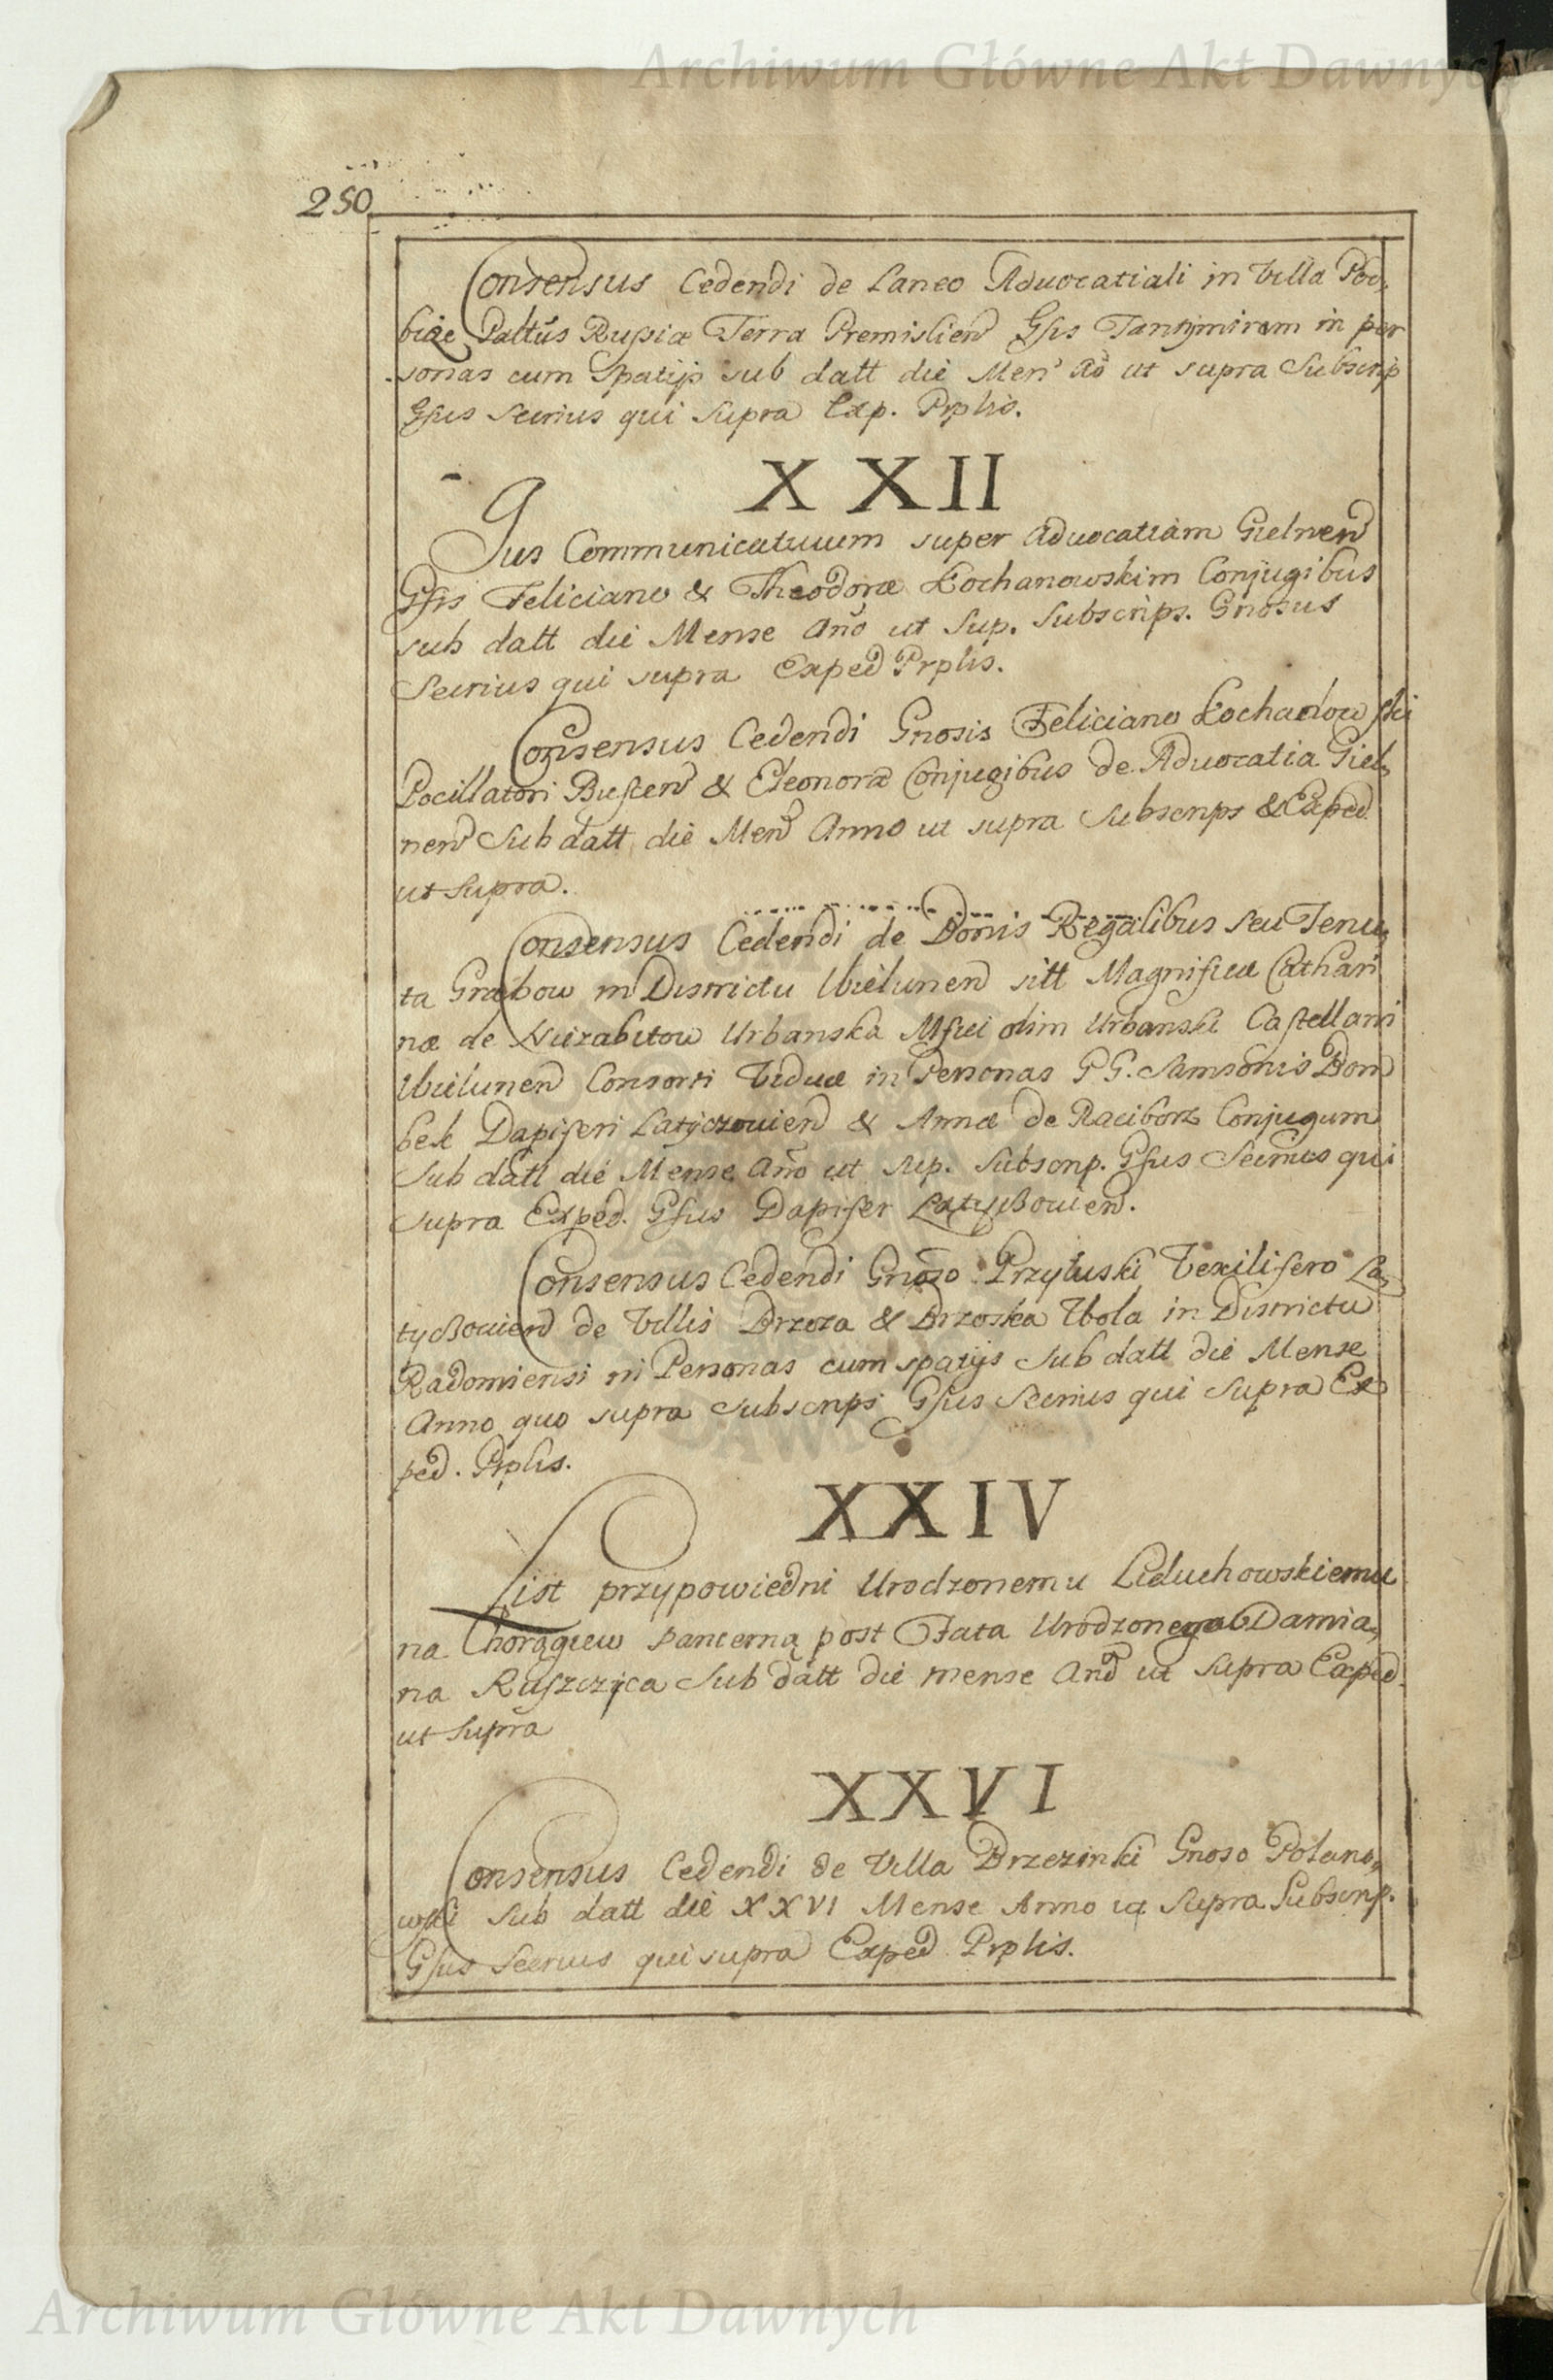 Archiwum Główne Akt Dawnych
250
Consensus Cedendi de Laneo Advocatiali in Villa Pod,
biae Palttus Russiæ Terra Premislien Gsis Tantymirom in per
sonas cum Spatijs sub datt die Men Ao ut supra Subscrip
Gsus Secrius qui supra Exp. Prplis.
XXII
Jus Communicativum super Advocatiam Gielnen
Gsis Feliciano & Theodoræ Kochanowskim Conjugibus
sub datt die Mense Año ut Sup. Subscrips. Gnosus
Secrius qui supra Exped Prplis.
Consensus Cedendi Gnosis Feliciano Kochanowski
Pocillatori Busten & Eleonoræ Conjugibus de Advocatia Giel,
nen Sub datt die Men Anno ut supra Subscrips & Exped
ut Supra.
Consensus Cedendi de Bonis Regalibus seu Tenu,
ta Grabow in Districtu Wielunen sitt Magnificæ Cathari
næ de Urbanska Msici olim Urbanski Castellani
Wielunen Consorti Viduæ in Personas G G. Samsonis Dom
bek Dapiferi Latyczovien & Annæ de Raciborz Conjugum
Sub datt die Mense Año ut sup. Subscrip. Gsus Secrius qui
supra Exped. Gsus Dapifer Latyczovien.
Consensus Cedendi Gnoso Przyłuski Vexilifero La,
tyczovien de Villis Brzoza & Brzoska Wola in Districtu
Radomiensi in Personas cum spatijs Sub datt die Mense
Anno quo supra Subscrips Gsus Secrius qui supra Ex
ped. Prplis.
XXIV
List przypowiedni Urodzonemu Leduchowskiemu
na Chorągiew pancerną post Fata Urodzonego Damia,
na Ruszczyca Sub datt die mense Año ut Supra Exped.
ut Supra
XXVI
Consensus Cedendi de Villa Brzezinki Gnoso Polano,
wski Sub datt die XXVI Mense Anno ut Supra Subscrip.
Gsus Secrius qui supra Exped Prplis.
Archiwum Główne Akt Dawnych